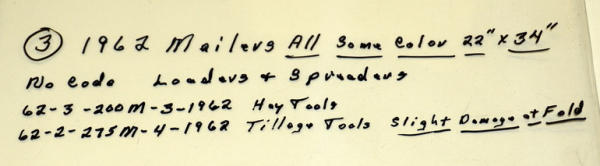 ③ 1962 Mailers All Some Color 22" x 34"
No Code Loaders + Spreaders
62-3-200M-3-1962 Hay Tools
62-2-275M-4-1962 Tillage Tools Slight Damage at Fold